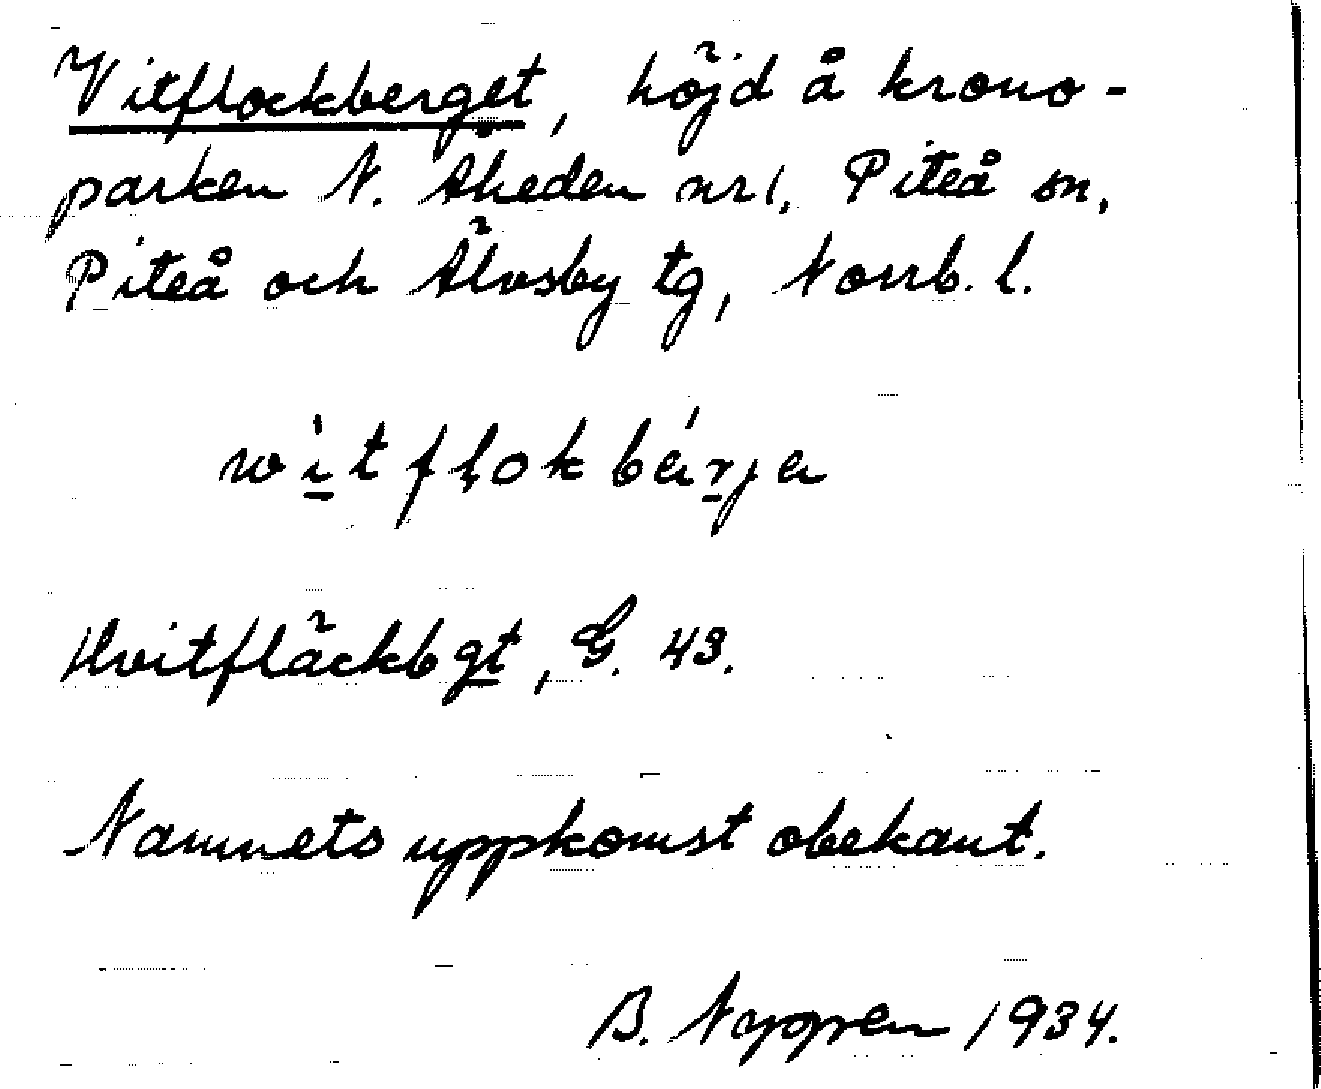 Vitflockberget, höjd å krono-
parken N. Åheden nr 1, Piteå sn,
Piteå och Älvsby tg, Norrb. l.
wìtflokbárja
Hvitfläckbgt, G. 43.
Namnets uppkomst obekant.
B. Nygren 1934.